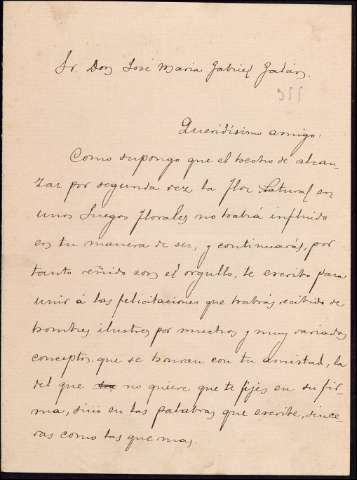 Sr. Don José Maria Gabriel Galán.
Queridísimo amigo:
Como supongo que el hecho de alcan-
zar por segunda vez la Flor Natural en
unos Juegos Florales no habrá influido
en tu manera de ser, y continuarás, por
tanto reñido con el orgullo, te escribo para
unir á las felicitaciones que habrás recibido de
hombres ilustres por muchos y muy variados
conceptos, que se honran con tu amistad, la
del que no quiere que te fijes en su fir-
ma, sino en las palabras que escribe, since-
ras como las que mas.